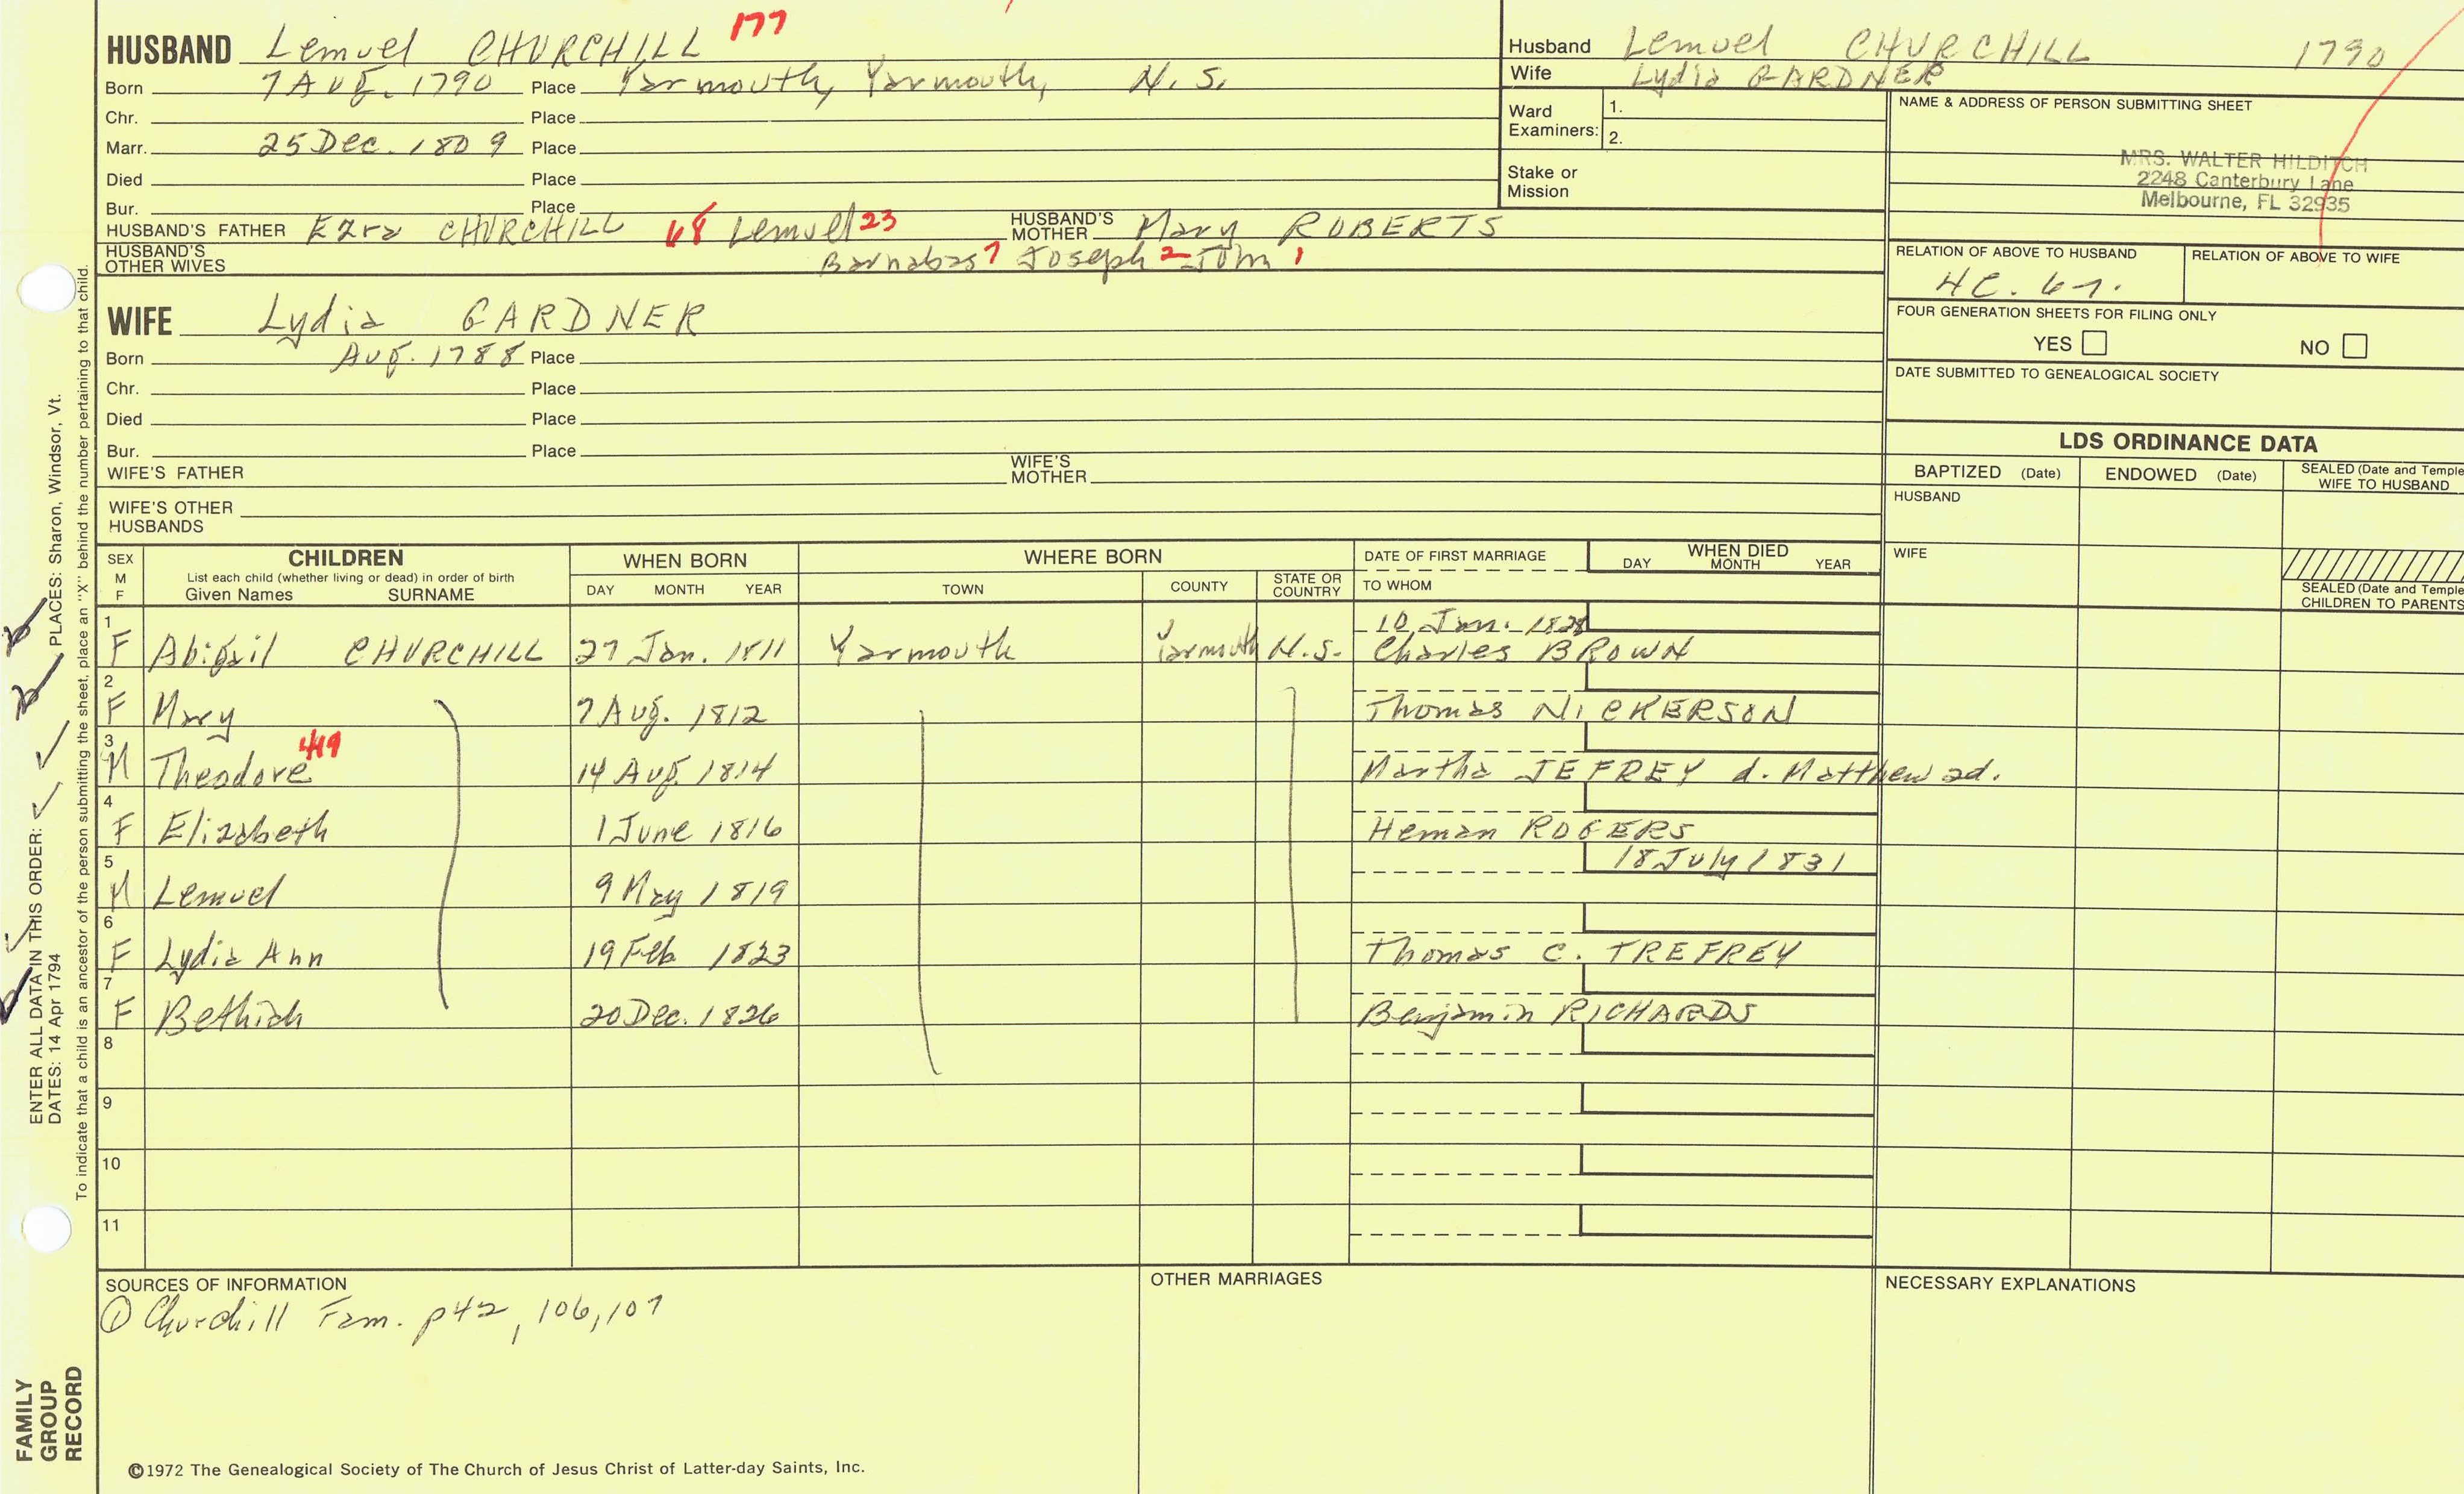 HUSBAND Lemuel CHURCHILL 177
Born 7 Aug. 1790 Place Yarmouth, Yarmouth, N.S.
Chr. Place
Marr. 25 Dec. 1809 Place
Died Place
Bur. Place
HUSBAND'S FATHER Ezra CHURCHILL 68 Lemuel 23 HUSBAND'S MOTHER Mary ROBERTS
HUSBAND'S OTHER WIVES Barnabas 7 Joseph 2 John 1
WIFE Lydia GARDNER
Born Aug. 1788 Place
Chr. Place
Died Place
Bur. Place
WIFE'S FATHER WIFE'S MOTHER
WIFE'S OTHER HUSBANDS
Husband Lemuel CHURCHILL 1790
Wife Lydia GARDNER
Ward Examiners: 1.
2.
Stake or Mission
NAME & ADDRESS OF PERSON SUBMITTING SHEET
MRS. WALTER HILDITCH
2248 Canterbury Lane
Melbourne, FL 32935
RELATION OF ABOVE TO HUSBAND RELATION OF ABOVE TO WIFE
4C. 6
FOUR GENERATION SHEETS FOR FILING ONLY
YES NO
DATE SUBMITTED TO GENEALOGICAL SOCIETY
LDS ORDINANCE DATA
BAPTIZED (Date) ENDOWED (Date) SEALED (Date and Temple
WIFE TO HUSBAND
HUSBAND
WIFE
SEALED (Date and Temple
CHILDREN TO PARENTS
SEX M F CHILDREN WHEN BORN WHERE BORN DATE OF FIRST MARRIAGE WHEN DIED
List each child (whether living or dead) in order of birth
Given Names SURNAME DAY MONTH YEAR TOWN COUNTY STATE OR COUNTRY TO WHOM DAY MONTH YEAR
1 10 Jan. 1828
F Abigail CHURCHILL 27 Jan. 1811 Yarmouth Yarmouth N.S. Charles BROWN
2
F Mary 7 Aug. 1812 Thomas NICKERSON
3
M Theodore 449 14 Aug. 1814 Martha JEFREY d. Matthew
4
F Elizabeth 1 June 1816 Heman ROGERS
5 18 July 1831
M Lemuel 9 May 1819
6
F Lydia Ann 19 Feb 1823 Thomas C. TREFREY
7
F Bethiah 20 Dec. 1826 Benjamin RICHARDS
8
9
10
11
SOURCES OF INFORMATION
① Churchill Fam. p42, 106, 107
OTHER MARRIAGES
NECESSARY EXPLANATIONS
©1972 The Genealogical Society of The Church of Jesus Christ of Latter-day Saints, Inc.
FAMILY GROUP RECORD
ENTER ALL DATA IN THIS ORDER: PLACES: Sharon, Windsor, Vt.
DATES: 14 Apr 1794
To indicate that a child is an ancestor of the person submitting the sheet, place an "X" behind the number pertaining to that child.